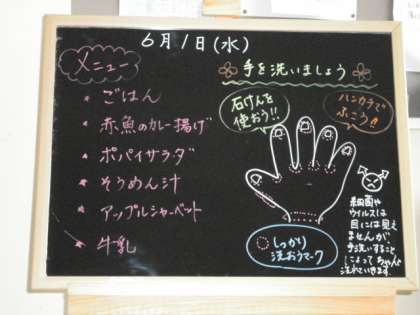 6月1日(水)
メニュー
ごはん
赤魚のカレー揚げ
ポパイサラダ
そうめん汁
アップルシャーベット
牛乳
手を洗いましょう
石けんを
使おう!!
ハンカチで
ふこう!!
しっかり
洗おうマーク
細菌や
ウイルスは
目には見え
ませんが、
手洗いすること
によってちゃんと
洗れていきます。